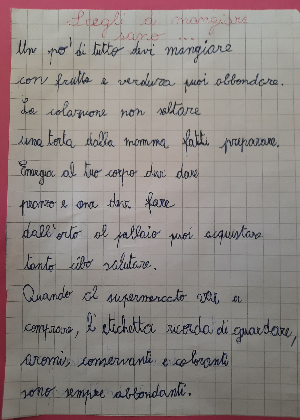 Scegli di mangiare
sano ...
Un po' di tutto devi mangiare
con frutta e verdura puoi abbondare.
La colazione non saltare
una torta dalla mamma fatti preparare.
Energia al tuo corpo devi dare
pranzo e cena devi fare
dall'orto al pollaio puoi acquistare
tanto cibo salutare.
Quando al supermercato vai a
comprare, l'etichetta ricorda di guardare,
aromi, conservanti e coloranti
sono sempre abbondanti.